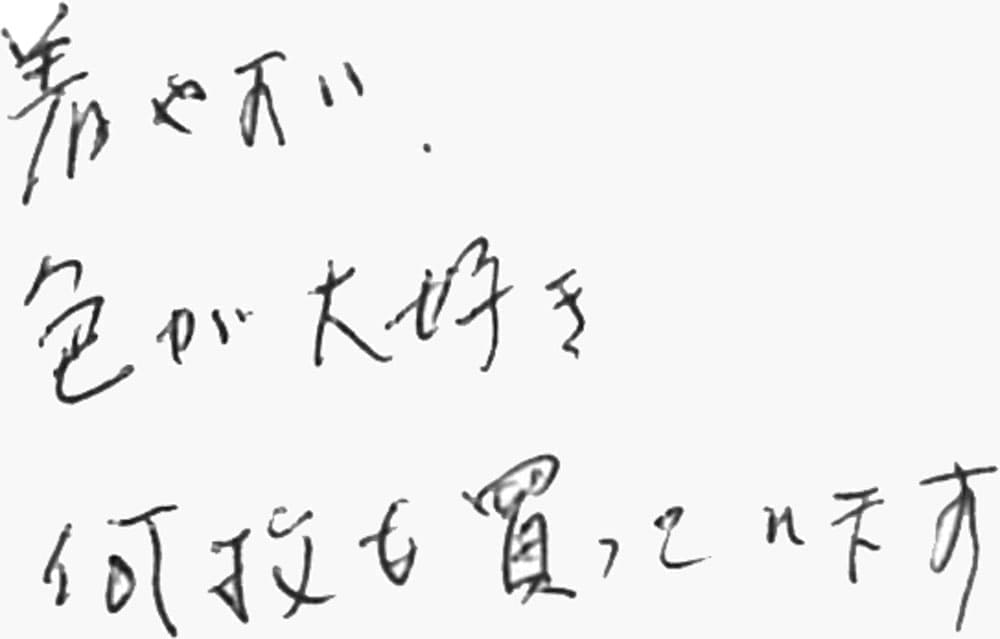 着やすい.
色が大好き
何枚も買っています